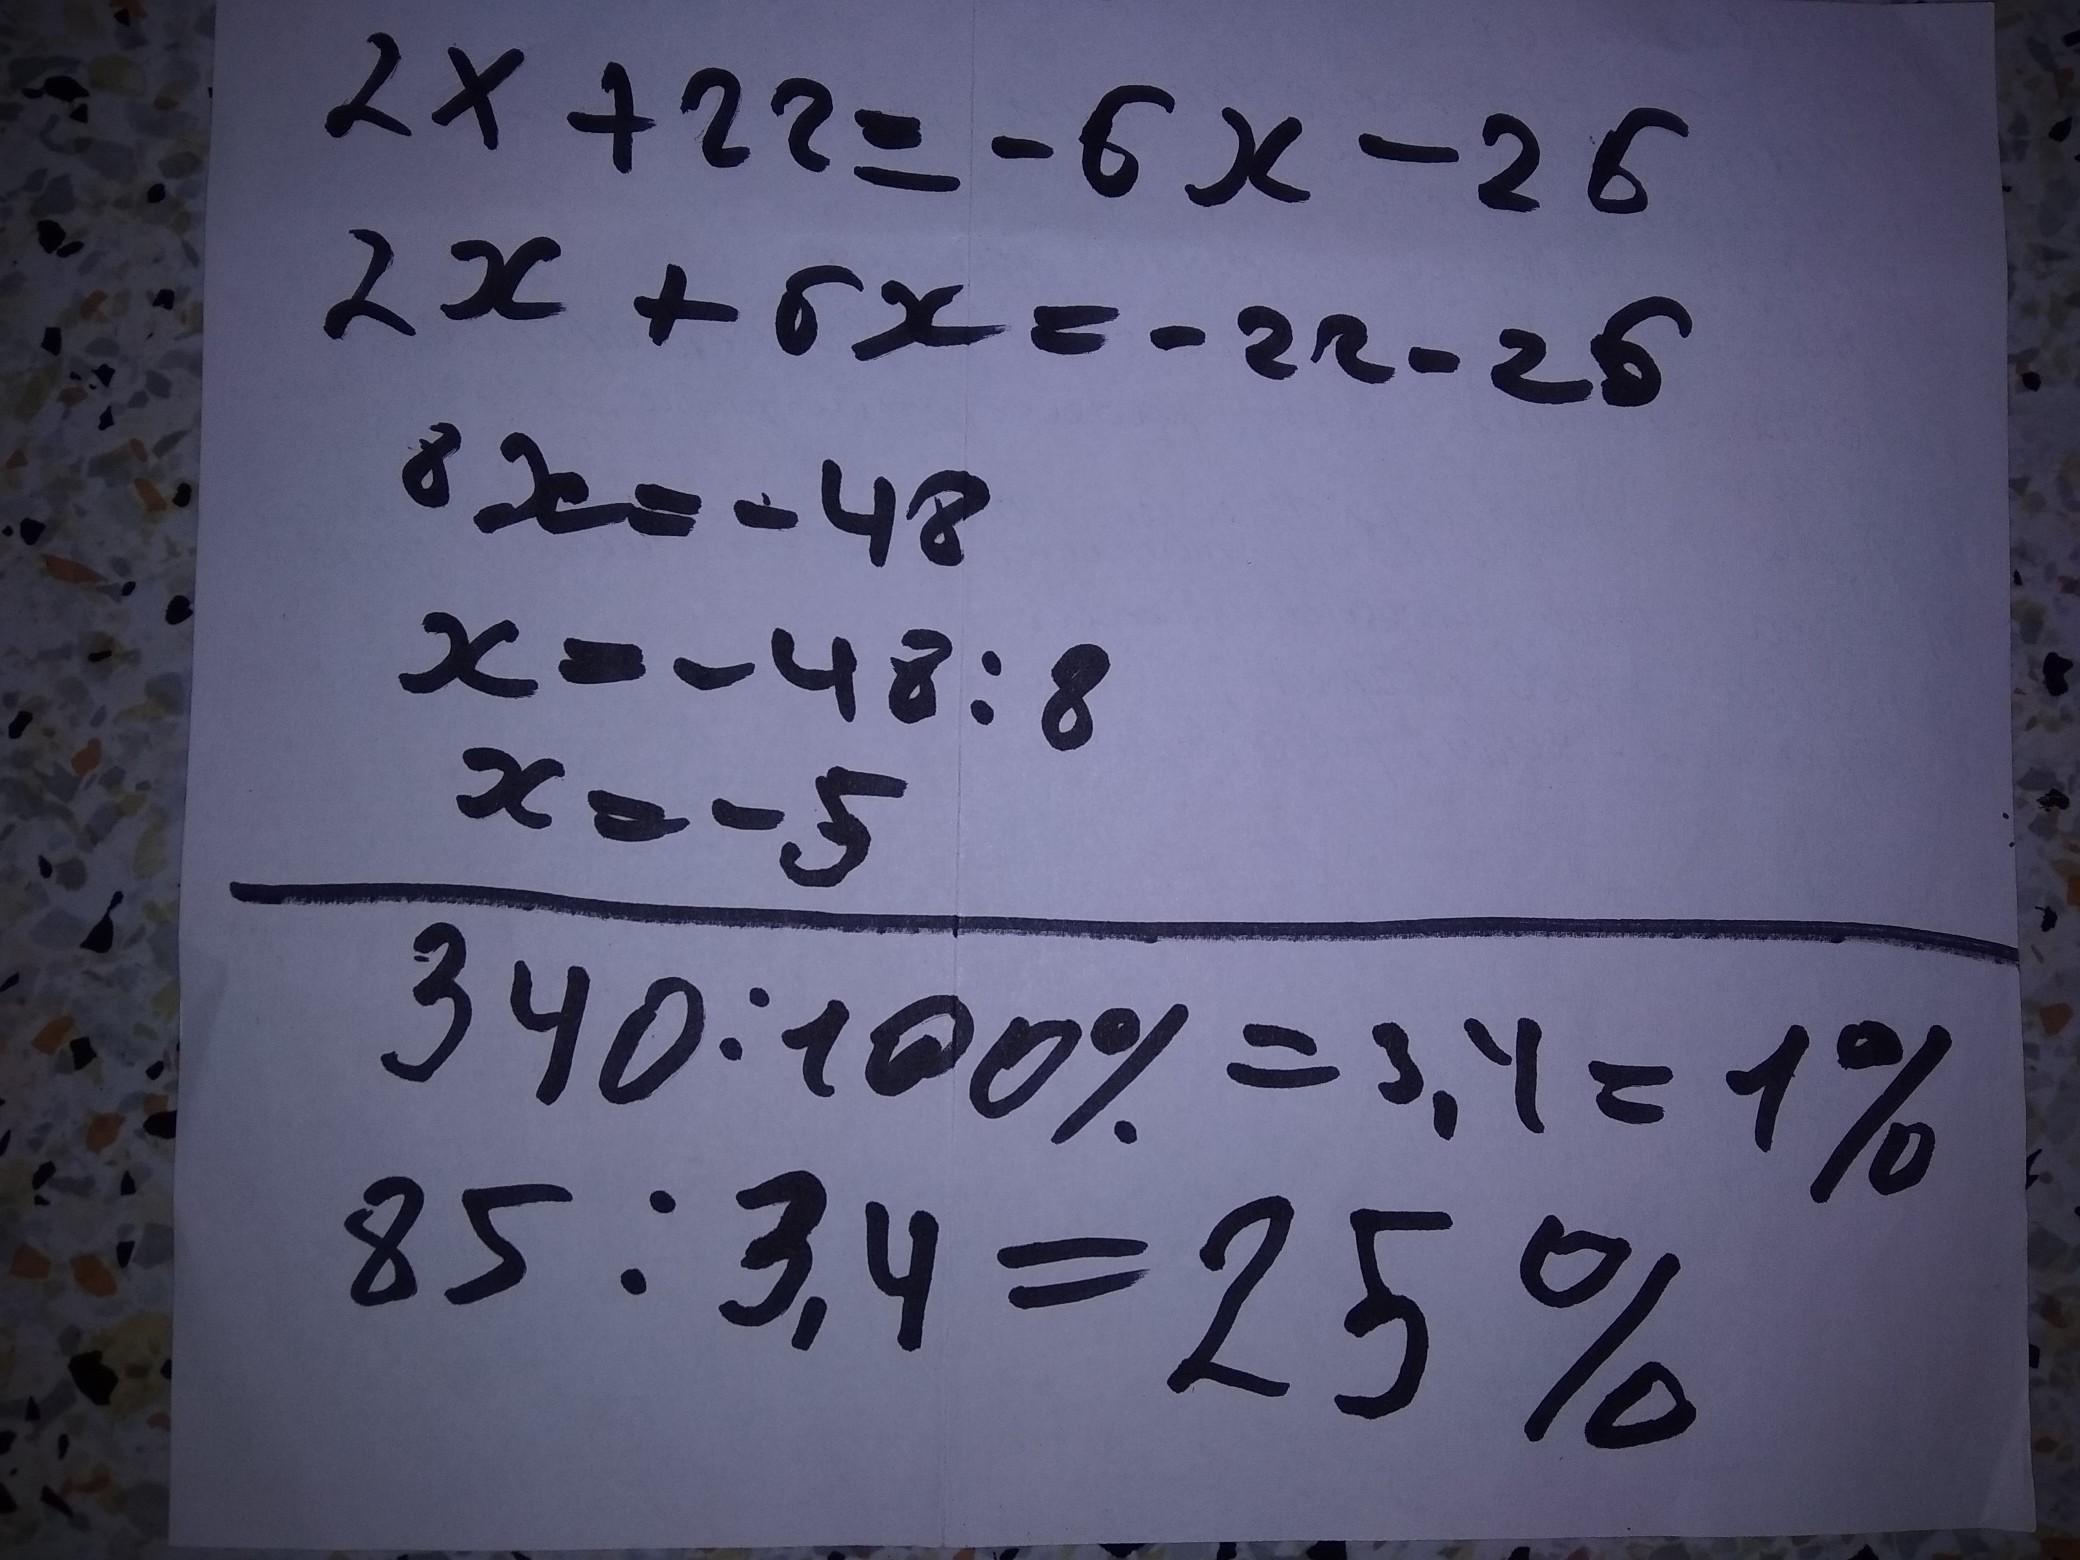 2x+22=-6x-26
2x+6x=-22-26
8x=-48
x=-48:8
x=-5
340:100%=3,4=1%
85:3,4=25%